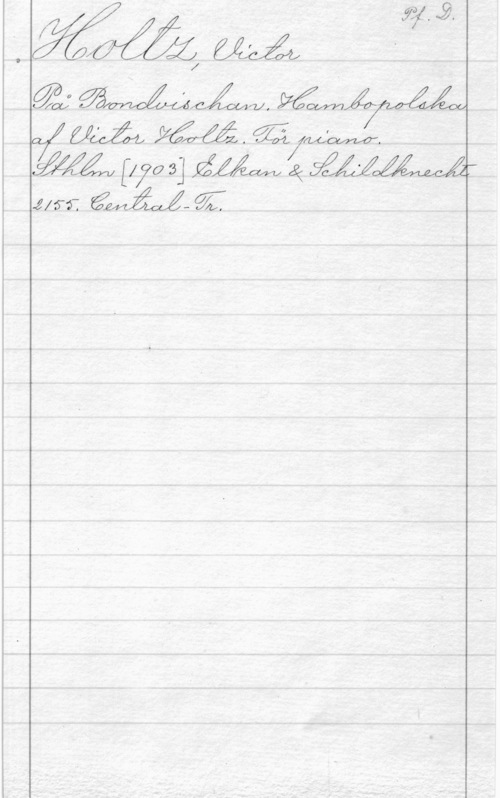 Pf. D.
Holtz, Victor
På Bondvischan. Hambopolska
af Victor Holtz. För piano.
Sthlm [1903] Elkan & Schildknecht
2155. Central-Tr.